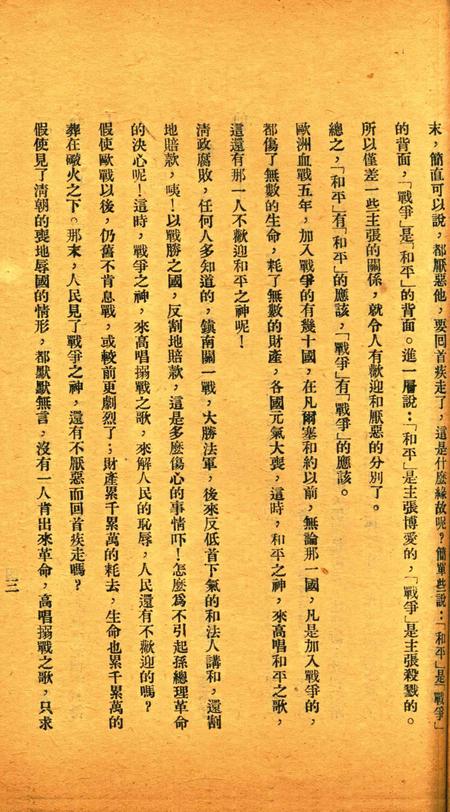 末，簡直可以說，都厭惡他，要回首疾走了，這是什麼緣故呢？簡單些說：「和平」是「戰爭」
的背面，「戰爭」是「和平」的背面。進一層說：「和平」是主張博愛的，「戰爭」是主張殺戮的。
所以僅差一些主張的關係，就令人有歡迎和厭惡的分別了。
總之，「和平」有「和平」的應該，「戰爭」有「戰爭」的應該。
歐洲血戰五年，加入戰爭的有幾十國，在凡爾塞和約以前，無論那一國，凡是加入戰爭的，
都傷了無數的生命，耗了無數的財產，各國元氣大喪，這時，和平之神，來高唱和平之歌，
這還有那一人不歡迎和平之神呢！
淸政腐敗，任何人多知道的，鎮南關一戰，大勝法軍，後來反低首下氣的和法人講和，還割
地賠款，咦！以戰勝之國，反割地賠款，這是多麼傷心的事情吓！怎麼爲不引起孫總理革命
的決心呢！這時，戰爭之神，來高唱搦戰之歌，來解人民的恥辱，人民還有不歡迎的嗎？
假使歐戰以後，仍舊不肯息戰，或較前更劇烈了；財產累千累萬的耗去，生命也累千累萬的
葬在礮火之下。那末，人民見了戰爭之神，還有不厭惡而回首疾走嗎？
假使見了淸朝的喪地辱國的情形，都默默無言，沒有一人肯出來革命，高唱搦戰之歌，只求
三